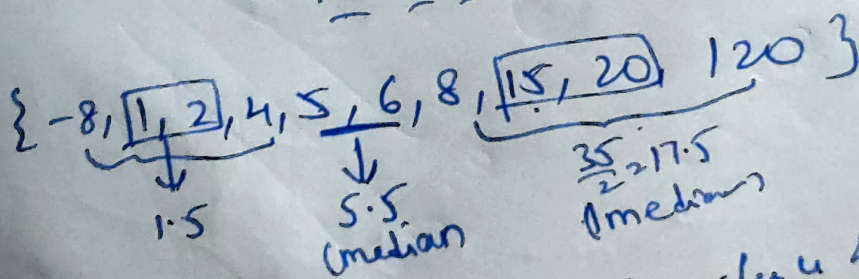 { -8, 1, 2, 4, 5, 6, 8, 15, 20, 120 }
1.5
5.5
(median
35/2 = 17.5
(median)